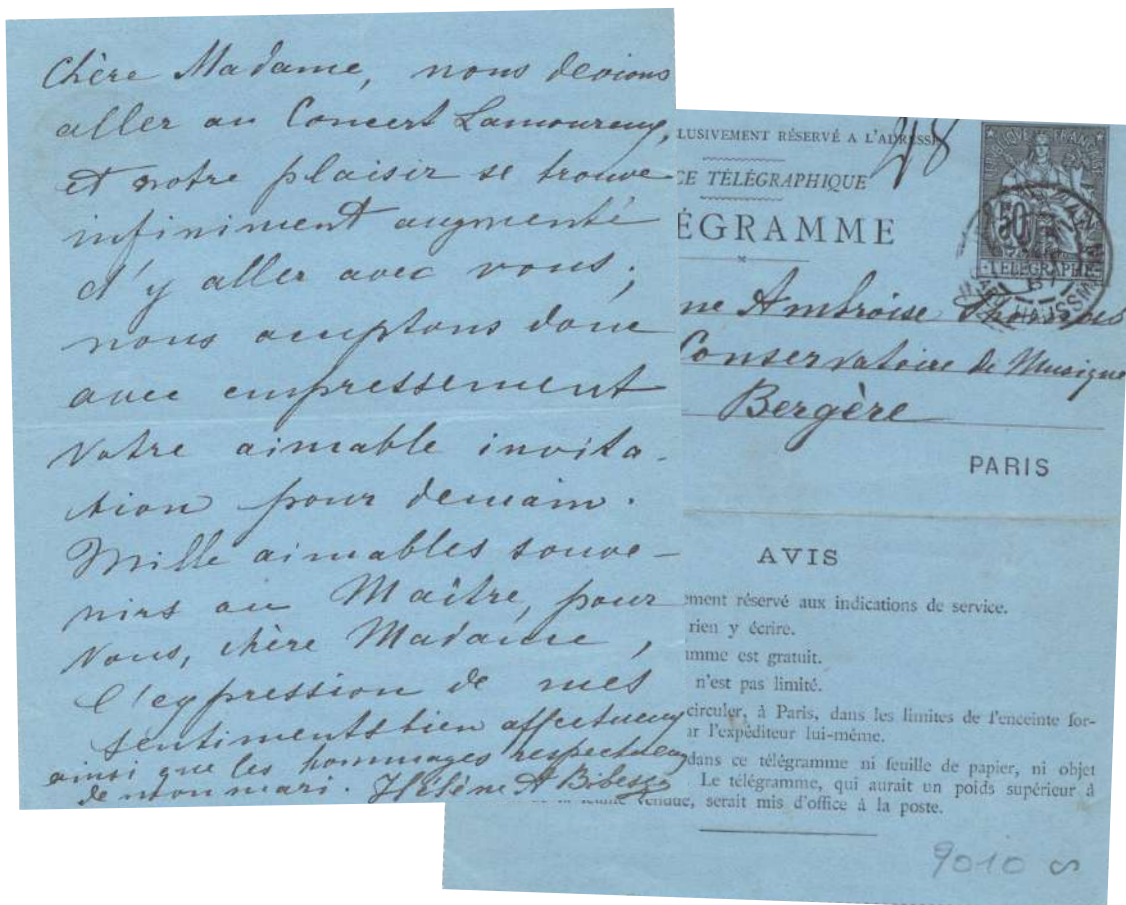 Chère Madame, nous devions
aller au Concert Lamoureux,
et notre plaisir se trouve
infiniment augmenté
d'y aller avec vous;
nous acceptons donc
avec empressement
votre aimable invita-
tion pour demain.
Mille aimables souve-
nirs au Maître, pour
vous, chère Madame,
l'expression de mes
sentiments bien affectueux
ainsi que les hommages respectueux
de mon mari. Hélène A Bibesco
LUSIVEMENT RÉSERVÉ A L'ADRESSE
CE TÉLÉGRAPHIQUE
ÉGRAMME
RÉPUBLIQUE FRANÇAISE
50
TÉLÉGRAPHE
HAUSSM
ne Ambroise Thomas
Conservatoire de Musique
Bergère
PARIS
AVIS
ement réservé aux indications de service.
rien y écrire.
amme est gratuit.
n'est pas limité.
circuler, à Paris, dans les limites de l'enceinte for-
ar l'expéditeur lui-même.
dans ce télégramme ni feuille de papier, ni objet
Le télégramme, qui aurait un poids supérieur à
vendue, serait mis d'office à la poste.
9010